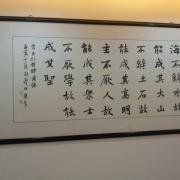 海不辭水故
能成其大山
不辭土石故
能成其高明
主不厭人故
能成其衆士
不厭學故能
成其聖